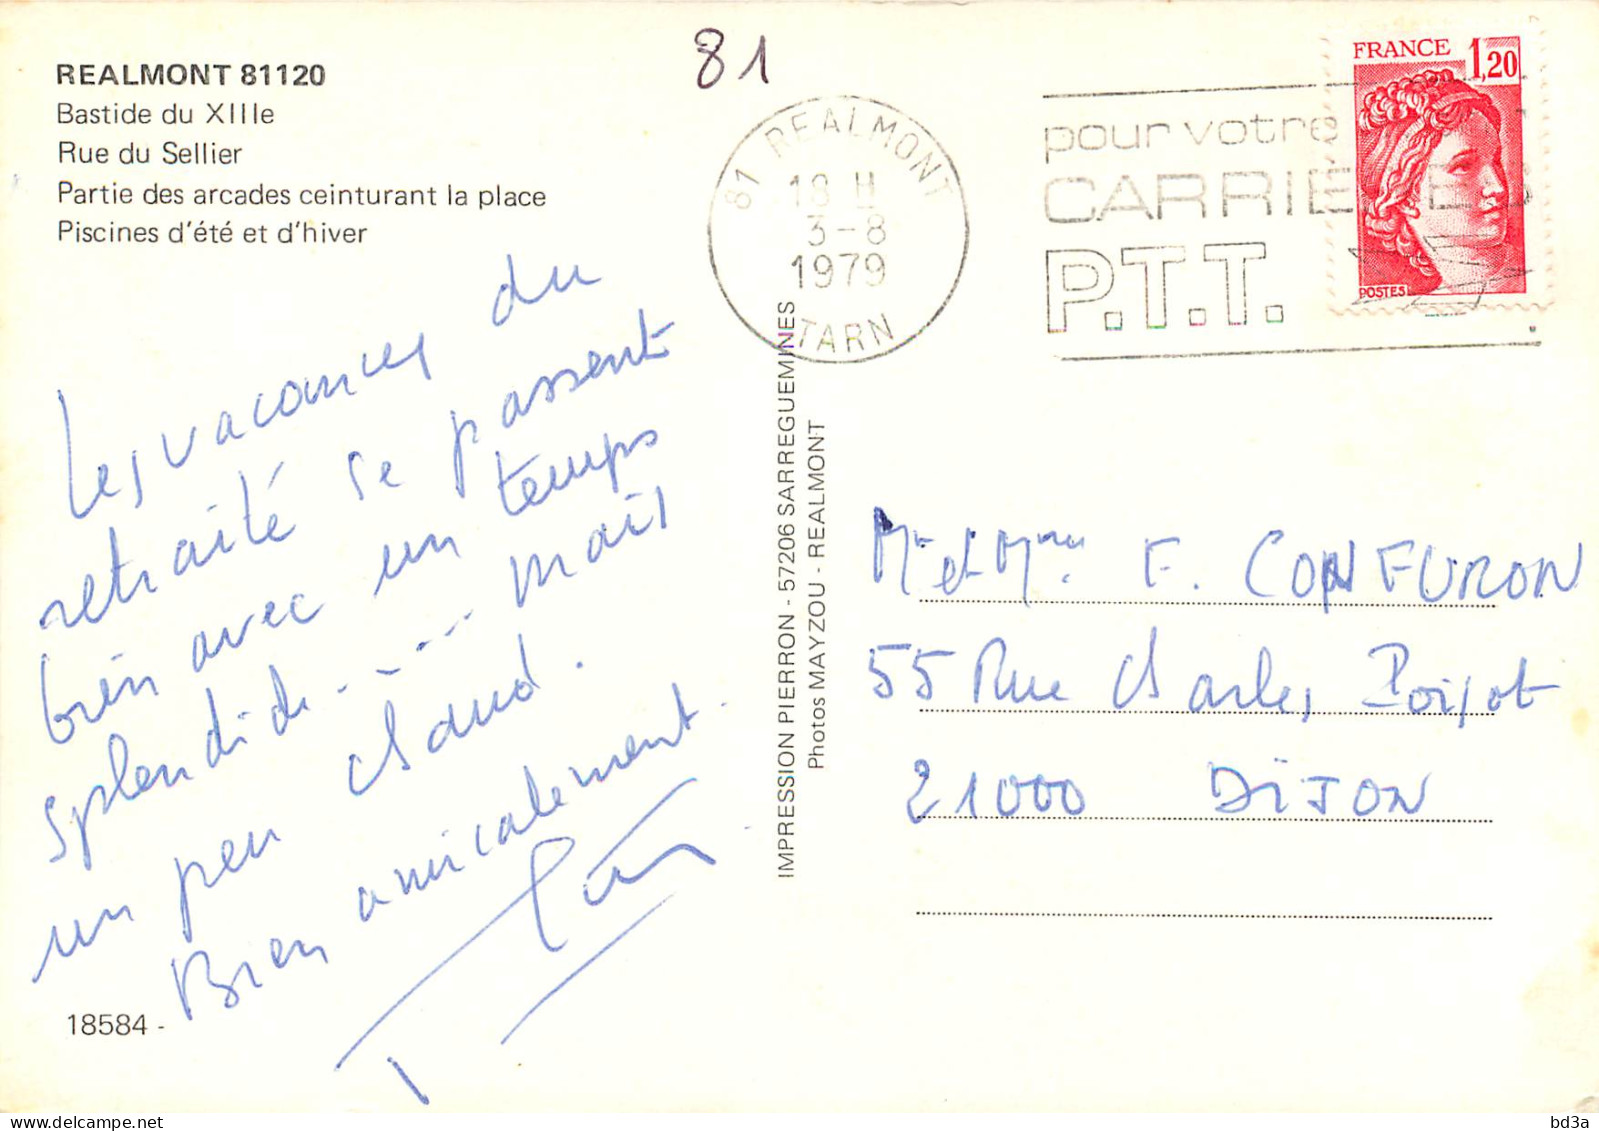 REALMONT 81120
Bastide du XIIIe
Rue du Sellier
Partie des arcades ceinturant la place
Piscines d'été et d'hiver
81
81 REALMONT
18 H
3-8
1979
TARN
pour votre
CARRIE
P.T.T.
FRANCE 1,20
POSTES
Les vacances du
retraité se passent
bien avec un temps
splendide ....... mais
un peu chaud.
Bien amicalement.
18584 -
IMPRESSION PIERRON - 57206 SARREGUEMINES
Photos MAYZOU - REALMONT
Mr et Mme F. CONFURON
55 Rue Charles Poisot
21000 DIJON
delcampe.net
bd3a